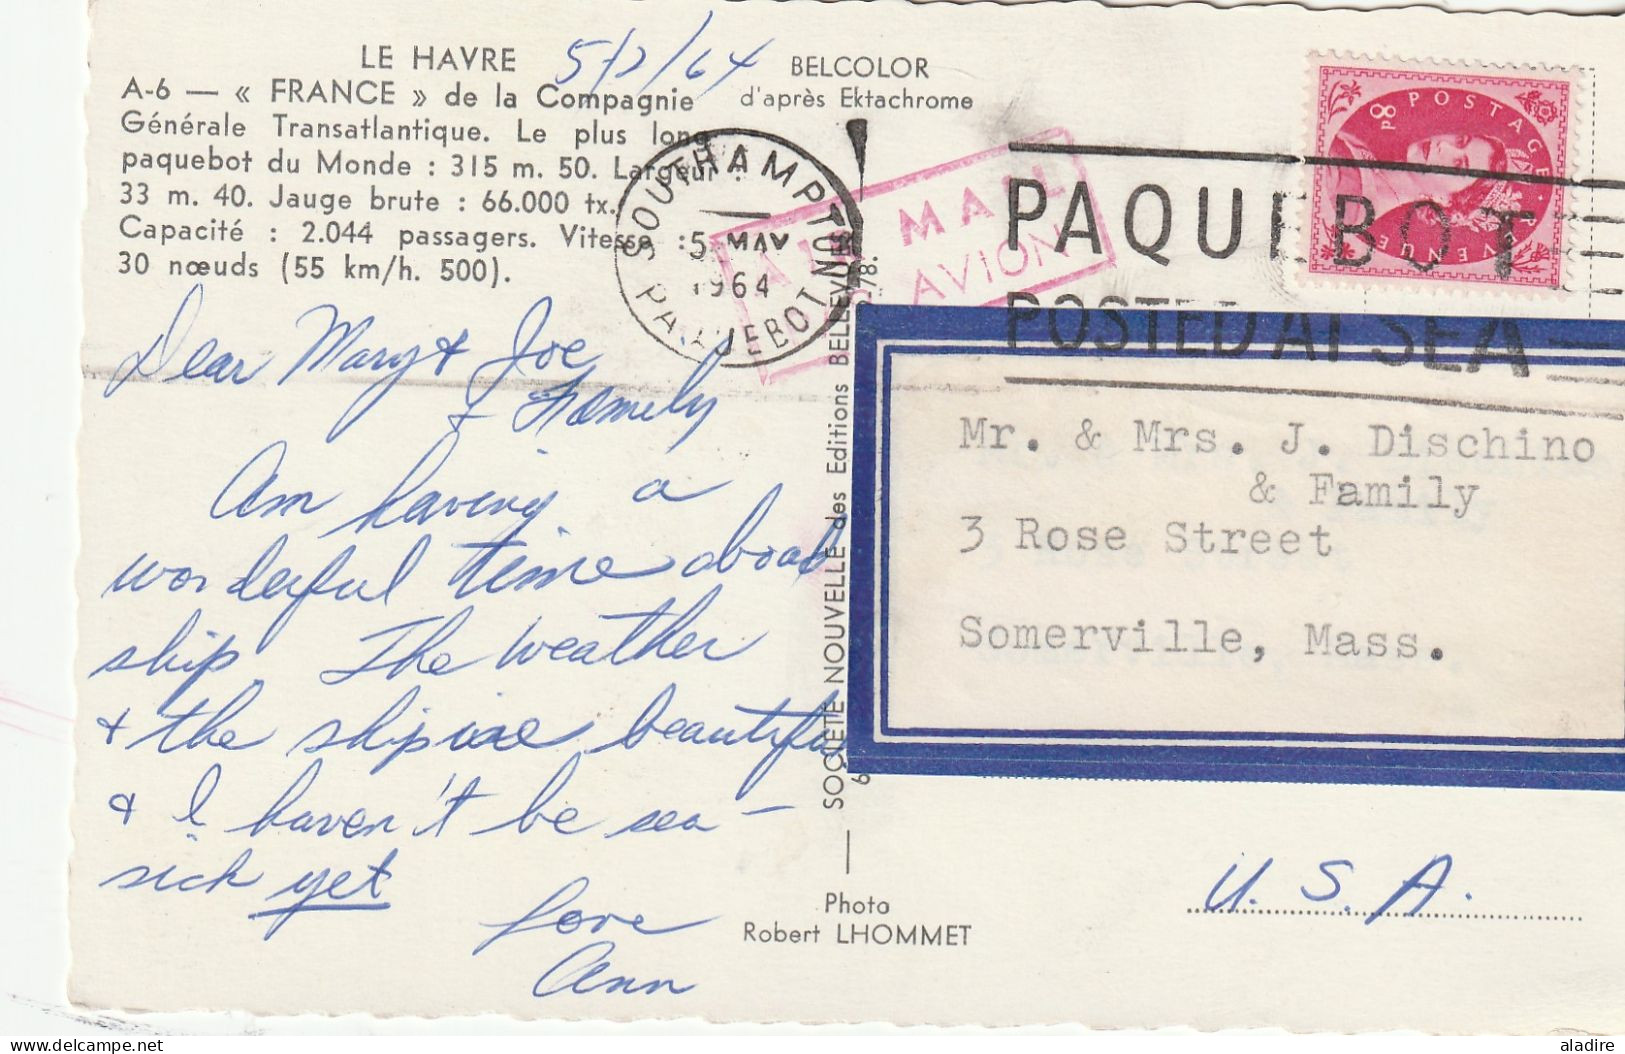 LE HAVRE
5/2/64
A-6 — « FRANCE » de la Compagnie
Générale Transatlantique. Le plus long
paquebot du Monde : 315 m. 50. Largeur :
33 m. 40. Jauge brute : 66.000 tx.
Capacité : 2.044 passagers. Vitesse :
30 nœuds (55 km/h. 500).
BELCOLOR
d'après Ektachrome
SOUTHAMPTON
5 MAY
1964
PAQUEBOT
AIR MAIL
AVION
PAQUEBOT
POSTED AT SEA
POSTAGE
REVENUE
8D
Dear Mary & Joe
& Family
Am having a
wonderful time aboad
ship. The weather
& the ship are beautiful
& I haven't be sea-
sick yet
Love
Ann
SOCIÉTÉ NOUVELLE des Editions BELLEVUE
Photo
Robert LHOMMET
Mr. & Mrs. J. Dischino
& Family
3 Rose Street
Somerville, Mass.
U. S. A.
aladire